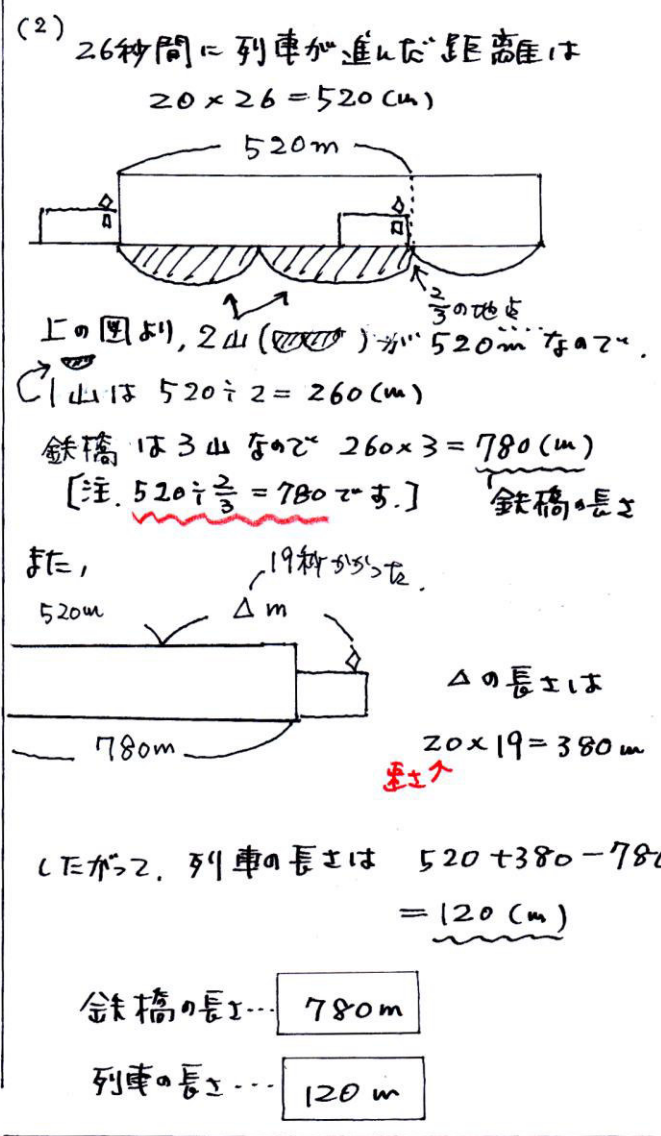 (2)
26秒間に列車が進んだ距離は
20×26=520(m)
520m
2/3の地点
上の図より,2山( )が520mなので.
1山は 520÷2=260(m)
鉄橋は3山なので 260×3=780(m)
[注. 520÷2/3=780です.]
鉄橋の長さ
また,
19秒かかった.
520m
△m
780m
△の長さは
20×19=380m
速さ↑
したがって. 列車の長さは 520+380-780
=120(m)
鉄橋の長さ… 780m
列車の長さ… 120m